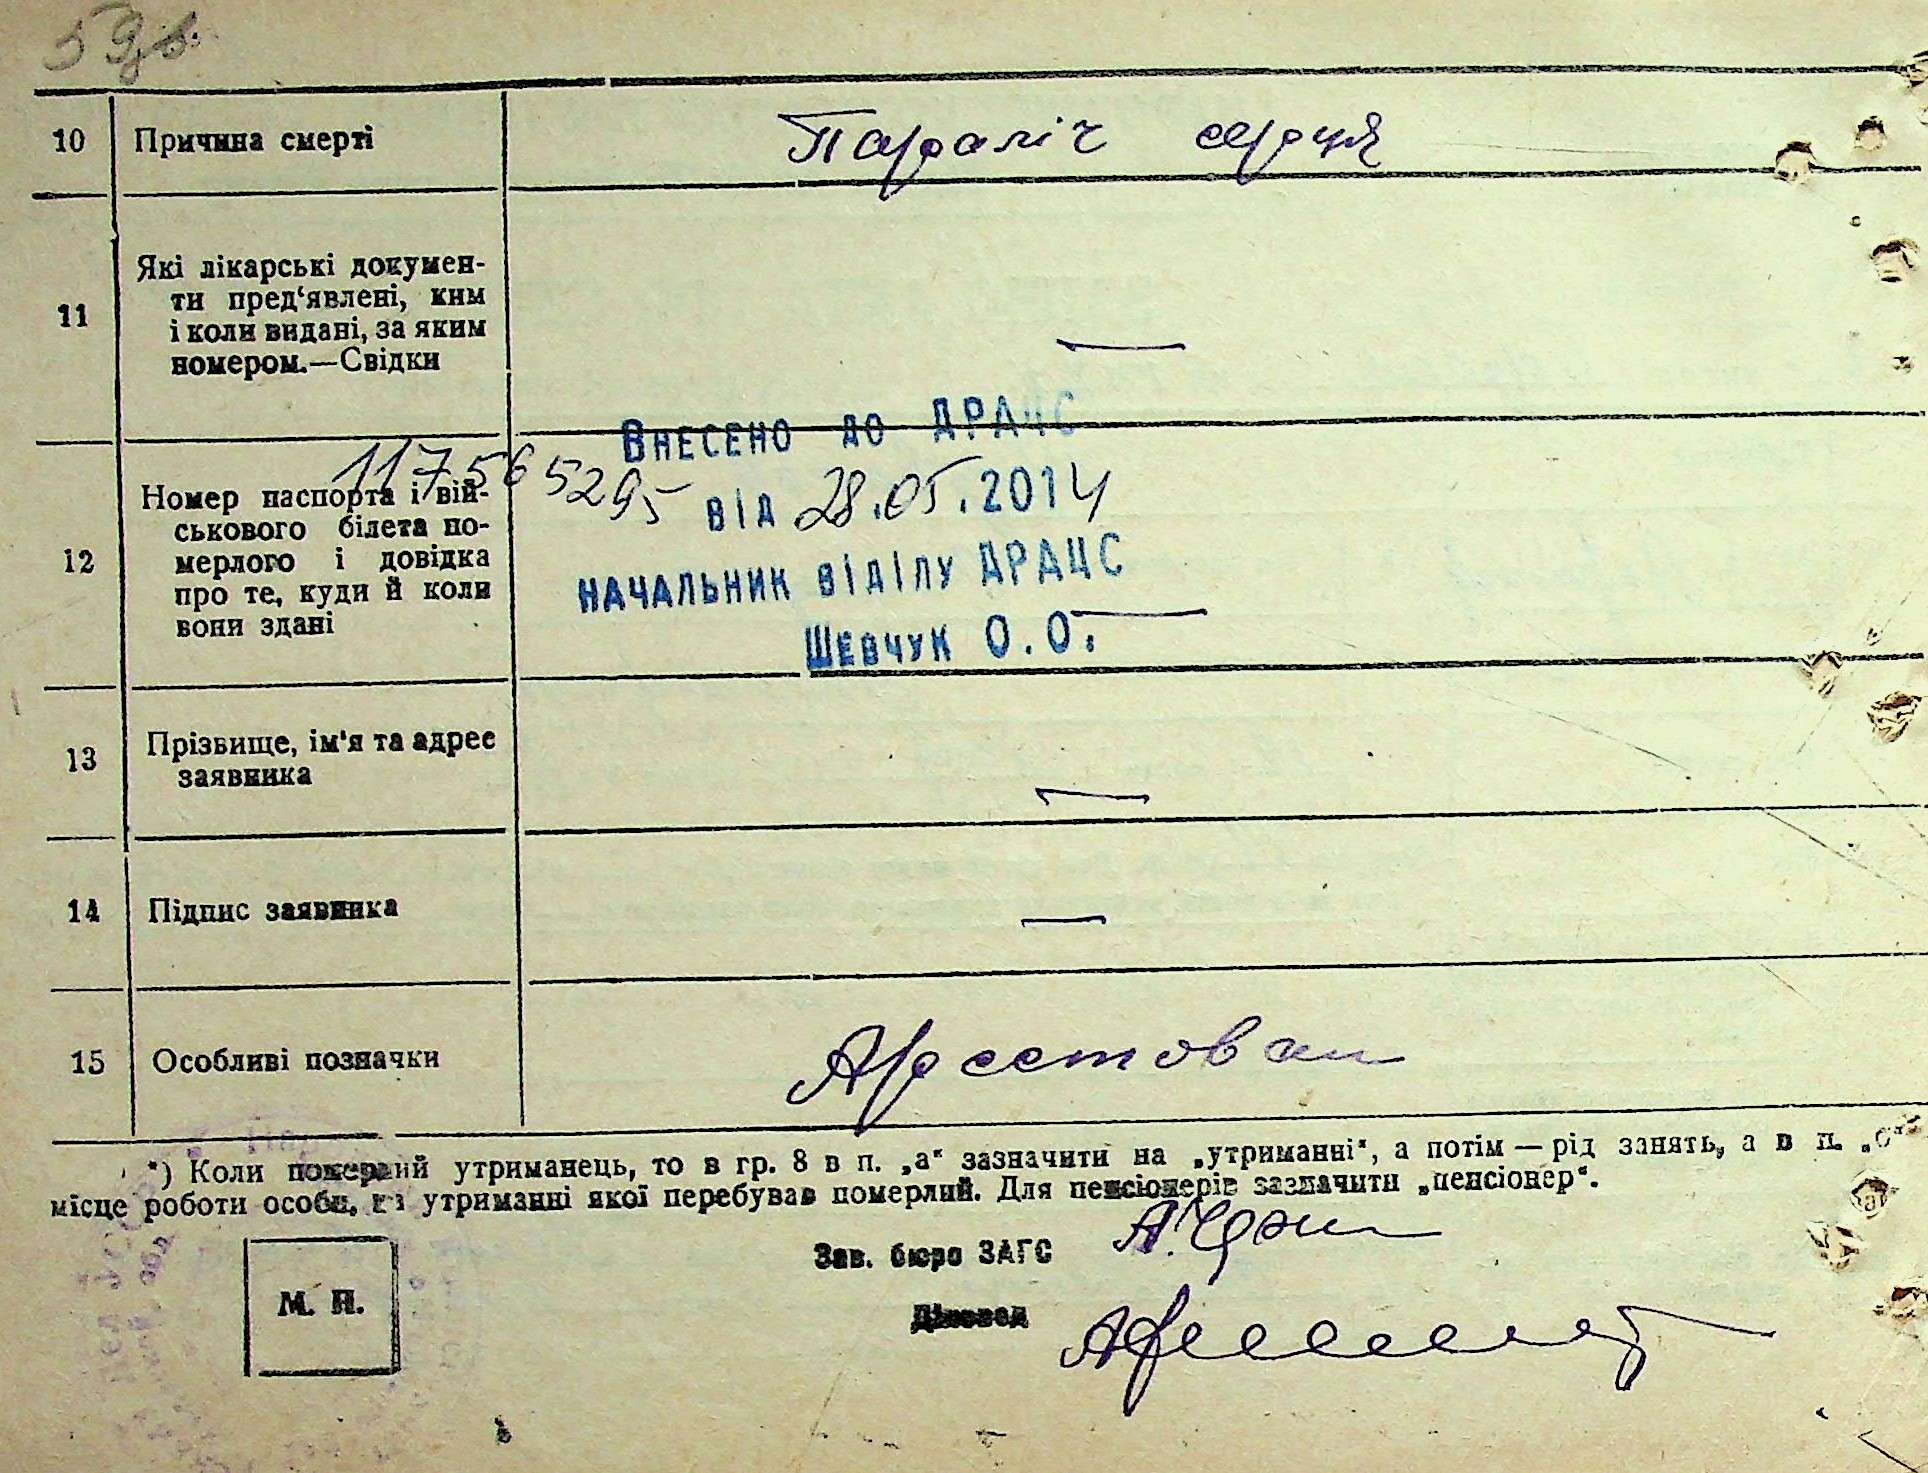 59
10 Причина смерті Параліч серця
11 Які лікарські докумен-
ти пред‘явлені, ким
і коли видані, за яким
номером.—Свідки —
Внесено до ДРАЦС
117565295 від 28.05.2014
начальник відділу ДРАЦС
Шевчук О.О.
12 Номер паспорта і вій-
ськового білета по-
мерлого і довідка
про те, куди й коли
вони здані —
13 Прізвище, ім'я та адрес
заявника —
14 Підпис заявника —
15 Особливі позначки Арестован
*) Коли померлий утриманець, то в гр. 8 в п. „а“ зазначити на „утриманні“, а потім — рід занять, а в п. „б“
місце роботи особи, на утриманні якої перебував померлий. Для пенсіонерів зазначити „пенсіонер“.
Зав. бюро ЗАГС
Діловод
М. П.